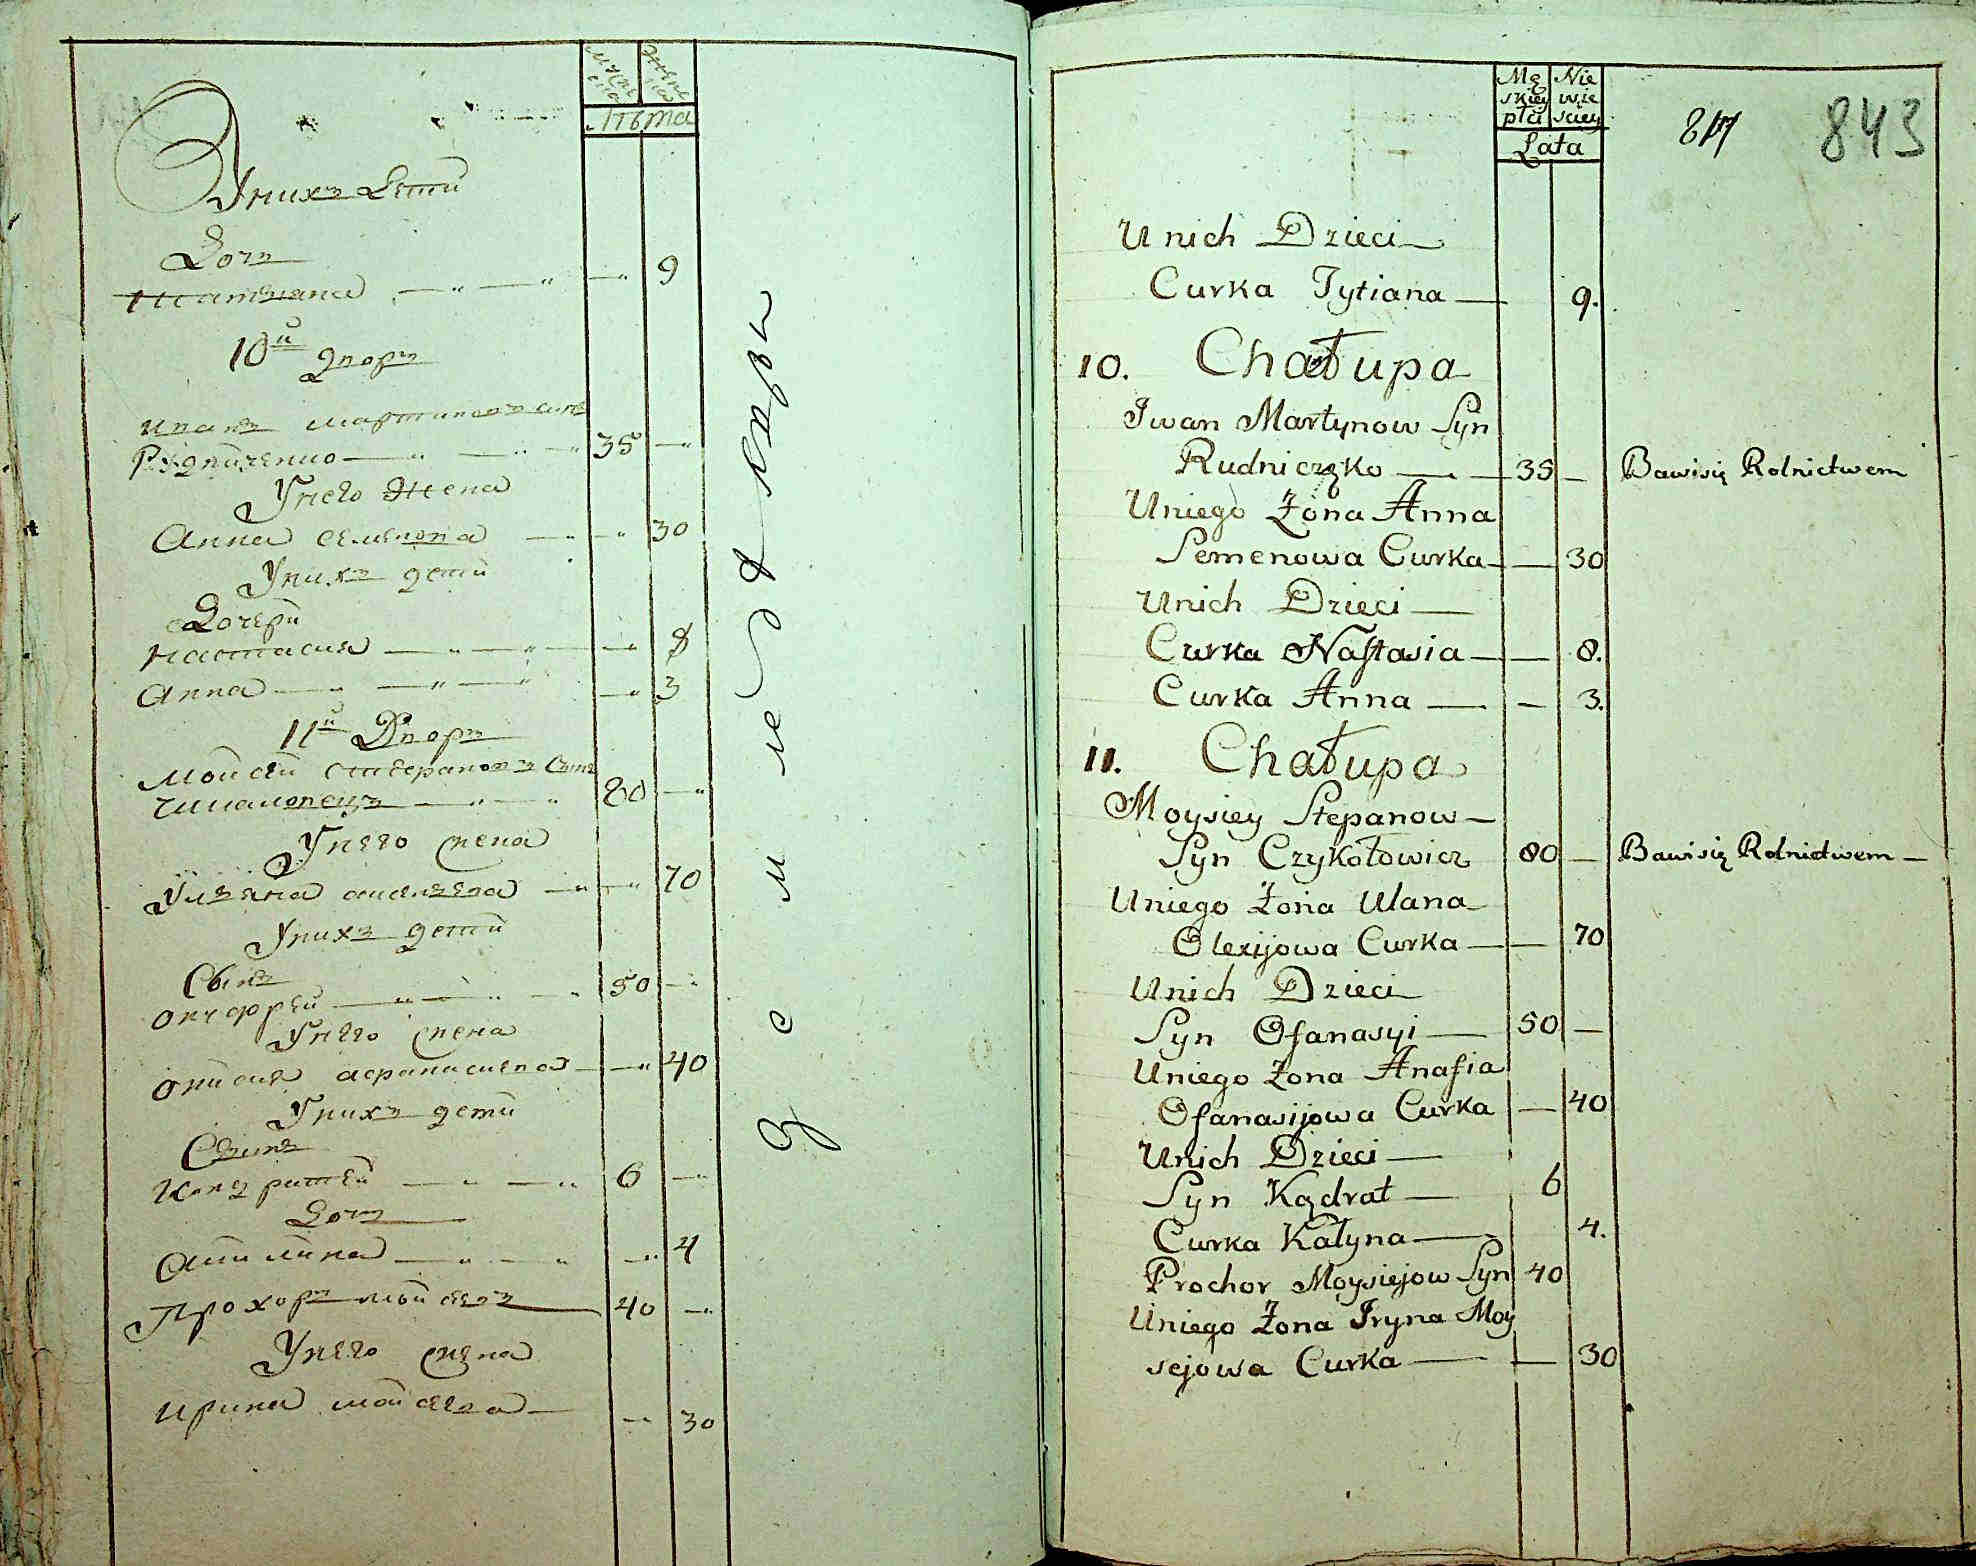 мужеска женска
лѣта
У них дети
Дочь
Татьяна 9
10й Двор
Иван Мартинов сын
Рудниченко 35
У него жена
Анна Семенова 30
У них дети
Дочери
Настасия 8
Анна 3
11й Двор
Мойсей Степанов сын
80
У него жена
Ульяна 70
У них дети
Сын
50
У него жена
40
У них дети
Сын
6
Дочь
4
Прохор Мойсеев 40
У него жена
Ирина Мойсеева 30
земледелцы
Męskiey płci Niewieściey
Lata
817 843
Unich Dzieci
Curka Tytiana 9.
10. Chałupa
Iwan Martynow Syn
Rudniczko 35 Bawisię Rolnictwem
Uniego Żona Anna
Semenowa Curka 30
Unich Dzieci
Curka Nastasia 8.
Curka Anna 3.
11. Chałupa
Moysiey Stepanow
Syn Czykołowicz 80 Bawisię Rolnictwem
Uniego Żona Ulana
Olexijowa Curka 70
Unich Dzieci
Syn Ofanasyi 50
Uniego Żona Anafia
Ofanasijowa Curka 40
Unich Dzieci
Syn Kądrat 6
Curka Katyna 4.
Prochor Moysiejow Syn 40
Uniego Żona Iryna Moy
sejowa Curka 30